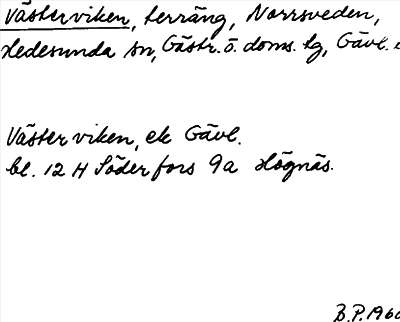 Västerviken, terräng, Norrsveden,
Hedesunda sn, Gästr. ö. doms. tg, Gävl.
Västerviken, ek Gävl.
bl. 12 H Söderfors 9a Högnäs.
B.P. 1960